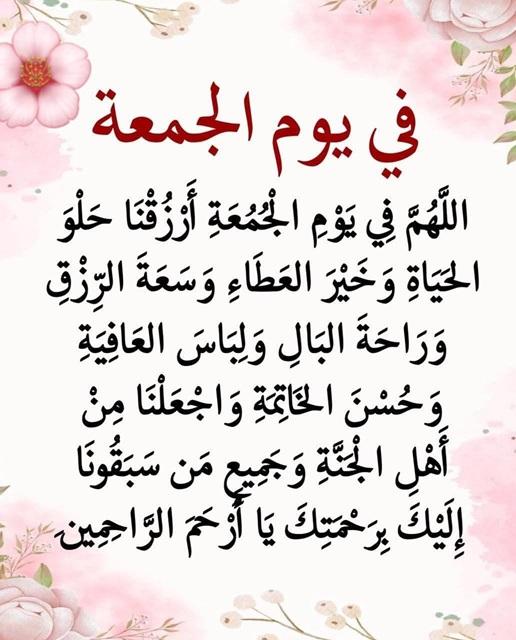 في يوم الجمعة
اللَّهُمَّ فِي يَوْمِ الْجُمُعَةِ أَرْزُقْنَا حَلْوَ
الحَيَاةِ وَخَيْرَ العَطَاءِ وَسَعَةَ الرِّزْقِ
وَرَاحَةَ البَالِ وَلِبَاسَ العَافِيَةِ
وَحُسْنَ الخَاتِمَةِ وَاجْعَلْنَا مِنْ
أَهْلِ الْجَنَّةِ وَجَمِيعِ مَن سَبَقُونَا
إِلَيْكَ بِرَحْمَتِكَ يَا أَرْحَمَ الرَّاحِمِينِ.